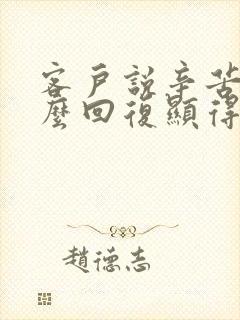 客戶說辛苦
麼回復顯得
趙德志